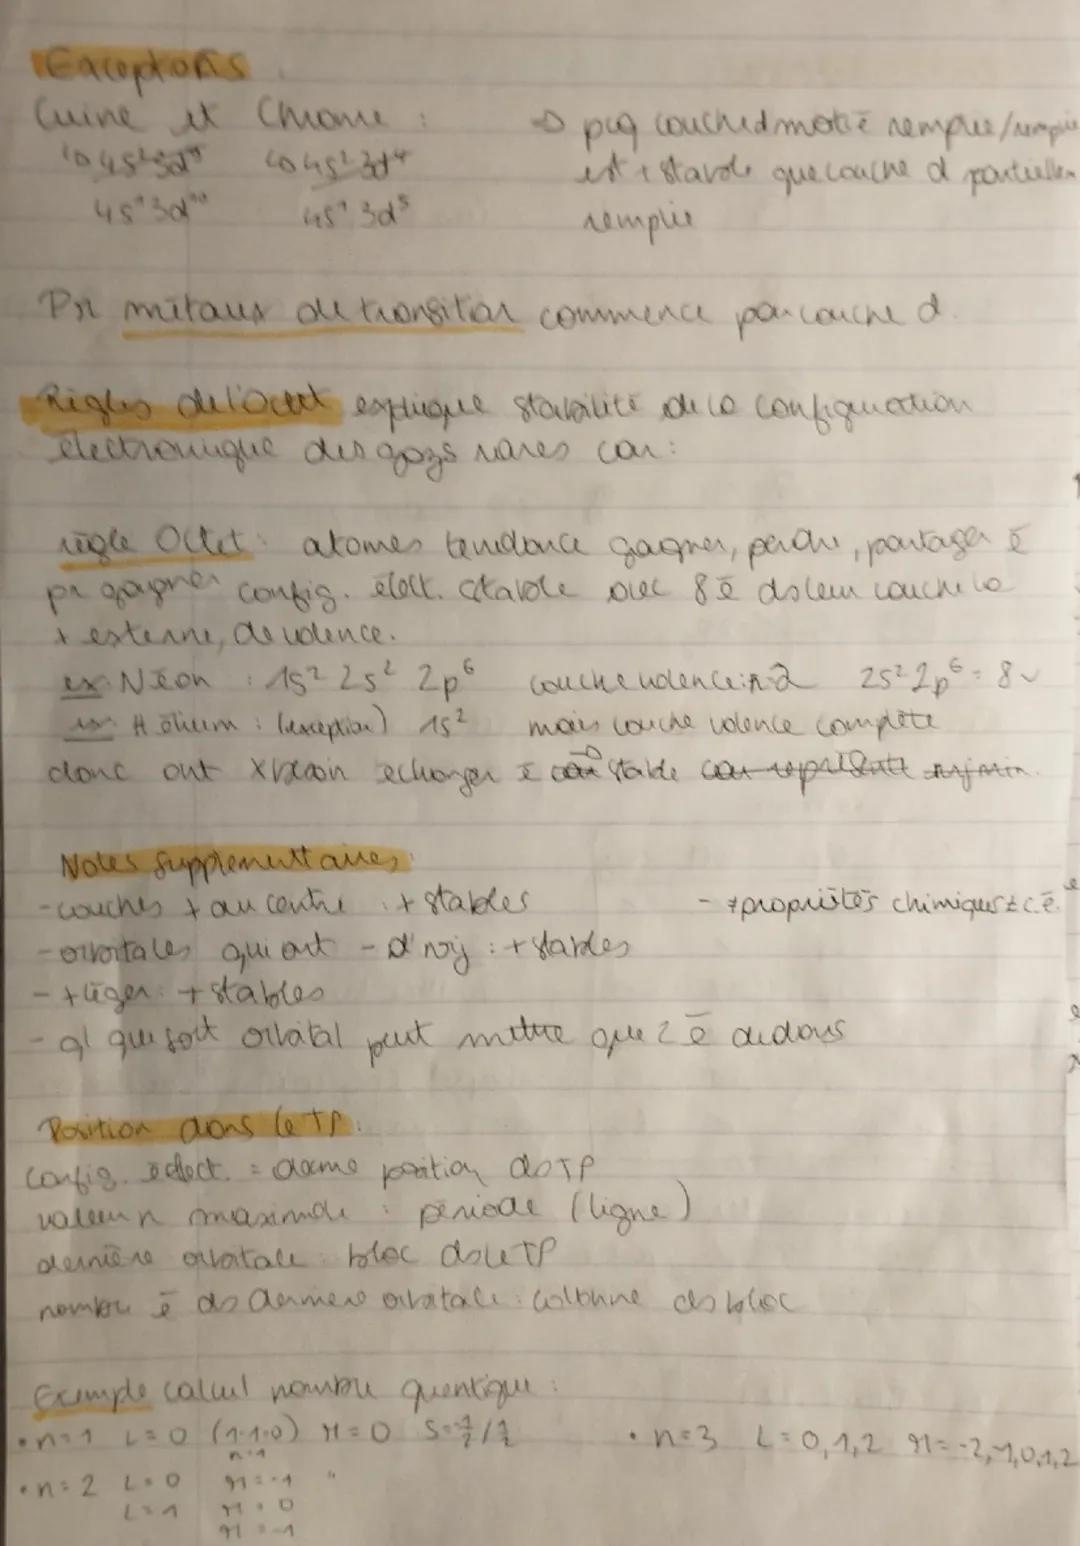 Exceptions
Cuivre et Chrome : → pcq couche d moitié remplie/remplie
4s² 3d⁹ 4s² 3d⁴ est + stable que couche d partiellem
4s¹ 3d¹⁰ 4s¹ 3d⁵ remplie
Pr métaux de transition commence par couche d.
Règles de l'Octet explique stabilité de la configuration
électronique des gazs rares car :
règle Octet : atomes tendance gagner, perdre, partager ē
pr gagner config. élect. stable avec 8 ē ds leur couche la
+ externe, de valence.
ex : Néon : 1s² 2s² 2p⁶ couche valence : n=2 2s² 2p⁶ = 8 ✓
ex : Hélium : (exception) 1s² mais couche valence complète
donc ont X besoin échanger ē → stable car représente
Notes supplémentaires :
- couches + au centre : + stables - ≠ propriétés chimiques ≠ c.ē.
- orbitales qui ont - d'nrj : + stables
- + léger : + stables
- ql que soit orbital peut mettre que 2 ē dedans
Position dans le TP :
config. élect. = donne position ds TP
valeur n maximale : période (ligne)
dernière orbitale : bloc ds le TP
nombre ē ds dernière orbitale : colonne ds bloc
Exemple calcul nombre quentique :
• n=1 L=0 (1-1=0) M=0 S=-½/½ • n=3 L=0,1,2 M=-2,-1,0,1,2
n-1
• n=2 L=0 M=-1 "
L=1 M=0
M=-1